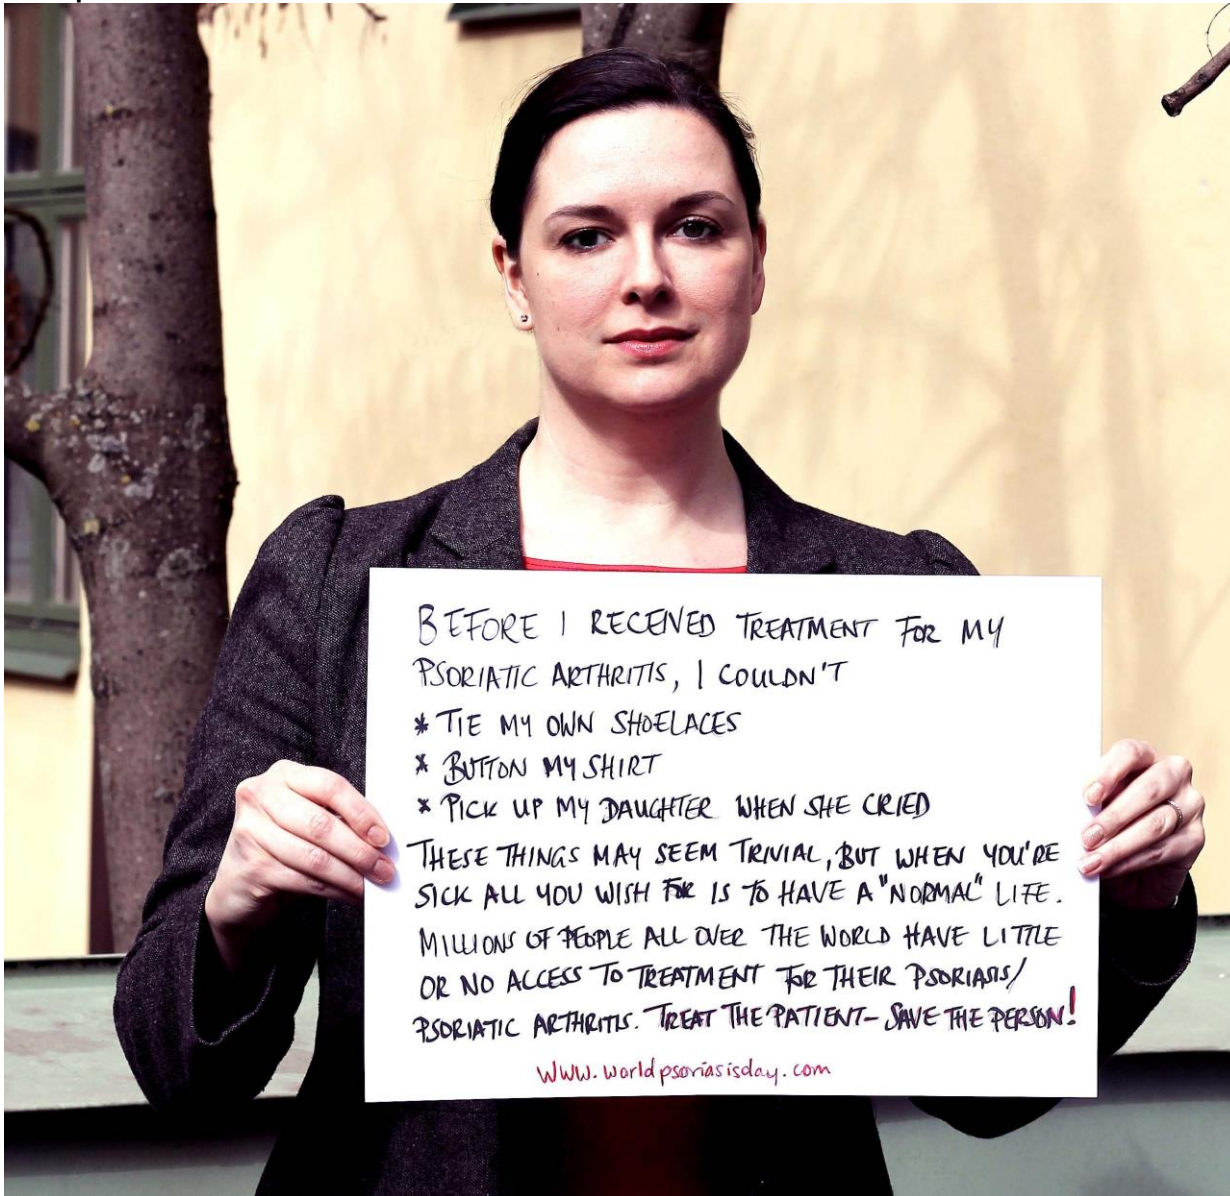 BEFORE I RECEIVED TREATMENT FOR MY
PSORIATIC ARTHRITIS, I COULDN'T
* TIE MY OWN SHOELACES
* BUTTON MY SHIRT
* PICK UP MY DAUGHTER WHEN SHE CRIED
THESE THINGS MAY SEEM TRIVIAL, BUT WHEN YOU'RE
SICK ALL YOU WISH FOR IS TO HAVE A "NORMAL" LIFE.
MILLIONS OF PEOPLE ALL OVER THE WORLD HAVE LITTLE
OR NO ACCESS TO TREATMENT FOR THEIR PSORIASIS/
PSORIATIC ARTHRITIS. TREAT THE PATIENT - SAVE THE PERSON!
www.worldpsoriasisday.com